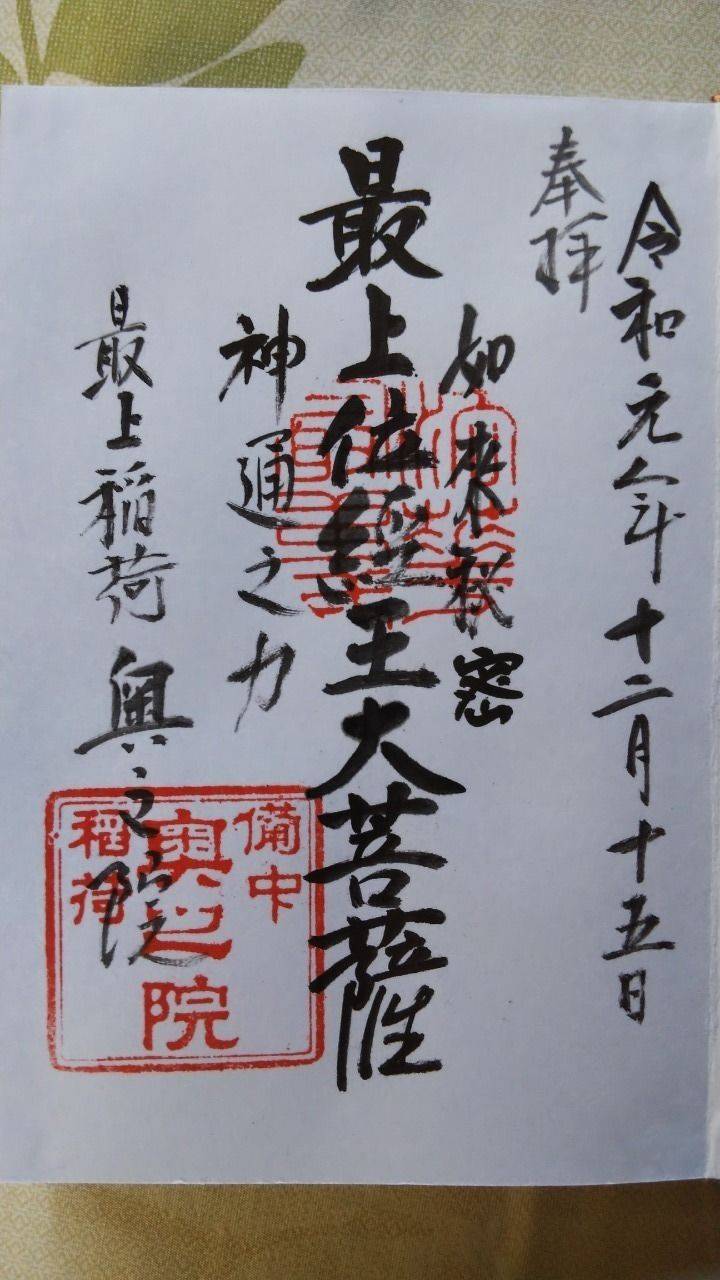 奉拝
令和元年十二月十五日
如来秘密
最上位経王大菩薩
神通之力
最上稲荷奥之院
備中
奥之院
稲荷